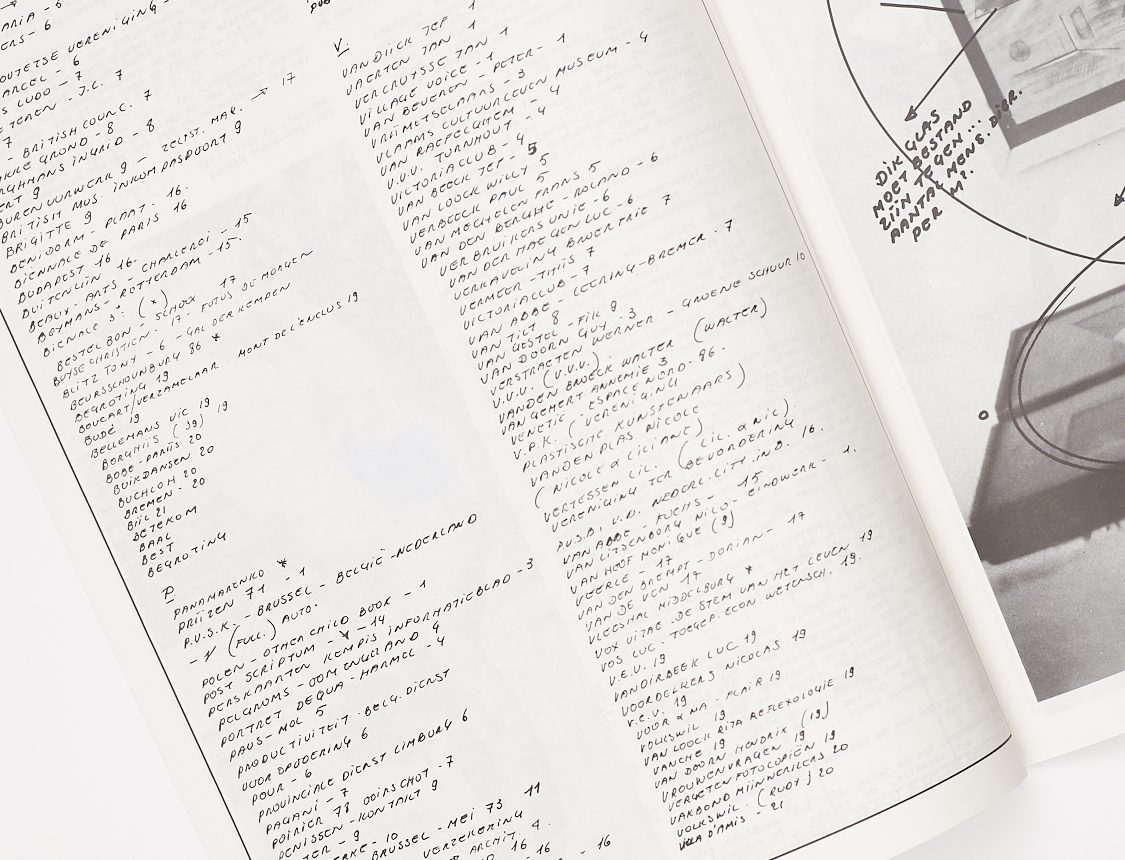 ARIA - 8
ERS - 6
OUTETSE VERENIGING -
ARCEL - 6
S LUDO - 7
E TEREN - J.C. 7
7
- BRITISH COUNC. 7
GROND - 8
GHMANS INGRID - 8
BURENVUURWERK 9 - ZELFST. MAG. → 17
BRITISH MUS. INKOM PASPOORT 9
BRIGITTE 9
BENIDORM - PLAAT - 16.
BIENNALE DE PARIS 16
BUDAPEST 16
BUITENLIJN 16.
BEAUX-ARTS - CHARLEROI - 15
BOYMANS - ROTTERDAM - 15.
BIENALE 3: (x)
BESTELBON - SCHOOL 17
BUYSE CHRISTIEN. 17 - FOTOS DE MORGEN
BLITZ TONY - 6 - GAL DER KEMPEN
BEURSSCHOUWBURG 86 *
BEGROTING 19
BOUCART/VERZAMELAAR. MONT DE L'ENCLUS 19
BUDÉ 19
BELLEMANS VIC 19
BORGHIJS (J9) 19
BOBE-PARIJS 20
BUIKDANSEN 20
BUCHLOH 20
BREMEN - 20
BIJL 21
BETEKOM
BAAL
BEST
BEGROTING
P
PANAMARENKO *
PRIJZEN 71 - 1
P.U.S.K. - BRUSSEL - BELGIË-NEDERLAND
- 1/ (FULL.) AUTO.
POLEN - OTHER CHILD BOOK - 1
POST SCRIPTUM - 14
PERSKAARTEN KEMPIS INFORMATIEBLAD - 3
PELGROMS - OOM ENGELAND 4
PORTRET DEQUA - HARMEL - 4
PAUS - MOL 5
PRODUCTIVITEIT - BELG. DIENST
VOOR OPVOERING 6
POUR - 6
PROVINCIALE DIENST LIMBURG 6
PAGANI - 7
POIRIER 78 OOIRSCHOT - 7
DENISSEN - KONTAKT 9
TER - 9
ERKE - 10
BRUSSEL - MEI 73 11
VERZEKERING
ARCHIT. 4.
16
- 16
- 16
V.
VANDIJCK JEF 1
VAERTEN JAN 1
VERCRUYSSE JAN 1
VILLAGE VOICE - 1
VAN BEVEREN - PETER - 1
VRIJMETSELAARS - 3
VLAAMS CULTUURLEVEN MUSEUM - 4
VAN RAFELGHEM - 4
V.V.V. TURNHOUT - 4
VICTORIA CLUB - 4
VAN BEECK JEF - 5
VAN LOOCK WILLY 5
VERBEECK PAUL 5
VAN MECHELEN FRANS 5
VAN DEN BERGHE - ROLAND - 6
VERBRUIKERSUNIE - 6
VAN DER HAEGEN LUC - 6
VERKAVELING BROER FRIE 7
VERMEER - THIJS 7
VICTORIACLUB - 7
VAN ABBE - LEERING - BREMER - 7
VAN TILT 8
VAN GESTEL - FIK 9
VAN DOORN GUY. 3
VERSTRAETEN WERNER - GROENE SCHUUR 10
V.V.V. (U.V.V.)
VANDEN BROECK WALTER (WALTER)
VAN GEMERT ANNEMIE 3
VENETIE - ESPACE NORD - 86.
V.P.K. (VERENIGING
PLASTISCHE KUNSTENAARS)
VANDENPLAS NICOLE
(NICOLE & LILIANE)
VERTESSEN LIL. (LIL. & NIC).
VERENIGING TER (BEVORDERING
P.V.S.B. V.D. NEDERL. LITT. IND. 16.
VAN ABBE - FUCHS - 15
VAN LITSENBORG NICO - EINDWERK - 1.
VAN HOOF MONIQUE (9)
VEERLE - 17
VAN DEN BREMPT - DORIAN - 17
VAN DE VEN 17
VLEESHAL MIDDELBURG *
VOX VITAE - DE STEM VAN HET LEVEN 19
VOS LUC - TOEGEP. ECON. WETENSCH. 19.
V.E.V. 19
VANDIRBEEK LUC 19
VOORDECKERS NICOLAS 19
V.E.V. 19
VOOR & NA - FLAIR 19
VOLKSWIL 19
VAN LOOCK RITA REFLEXOLOGIE 19
VANCHE 19
VAN DOORN HENDRIK (19)
VROUWENVRAGEN 19
VERGETEN FOTOCOPIEËN 19
VAKBOND MIJNWERKERS 20
VOLKSWIL. (RUDY) 20
VILLA D'AMIS - 21
DIK GLAS
MOET BESTAND
ZIJN TEGEN ...
AANTAL MENS. DIER.
PER M².